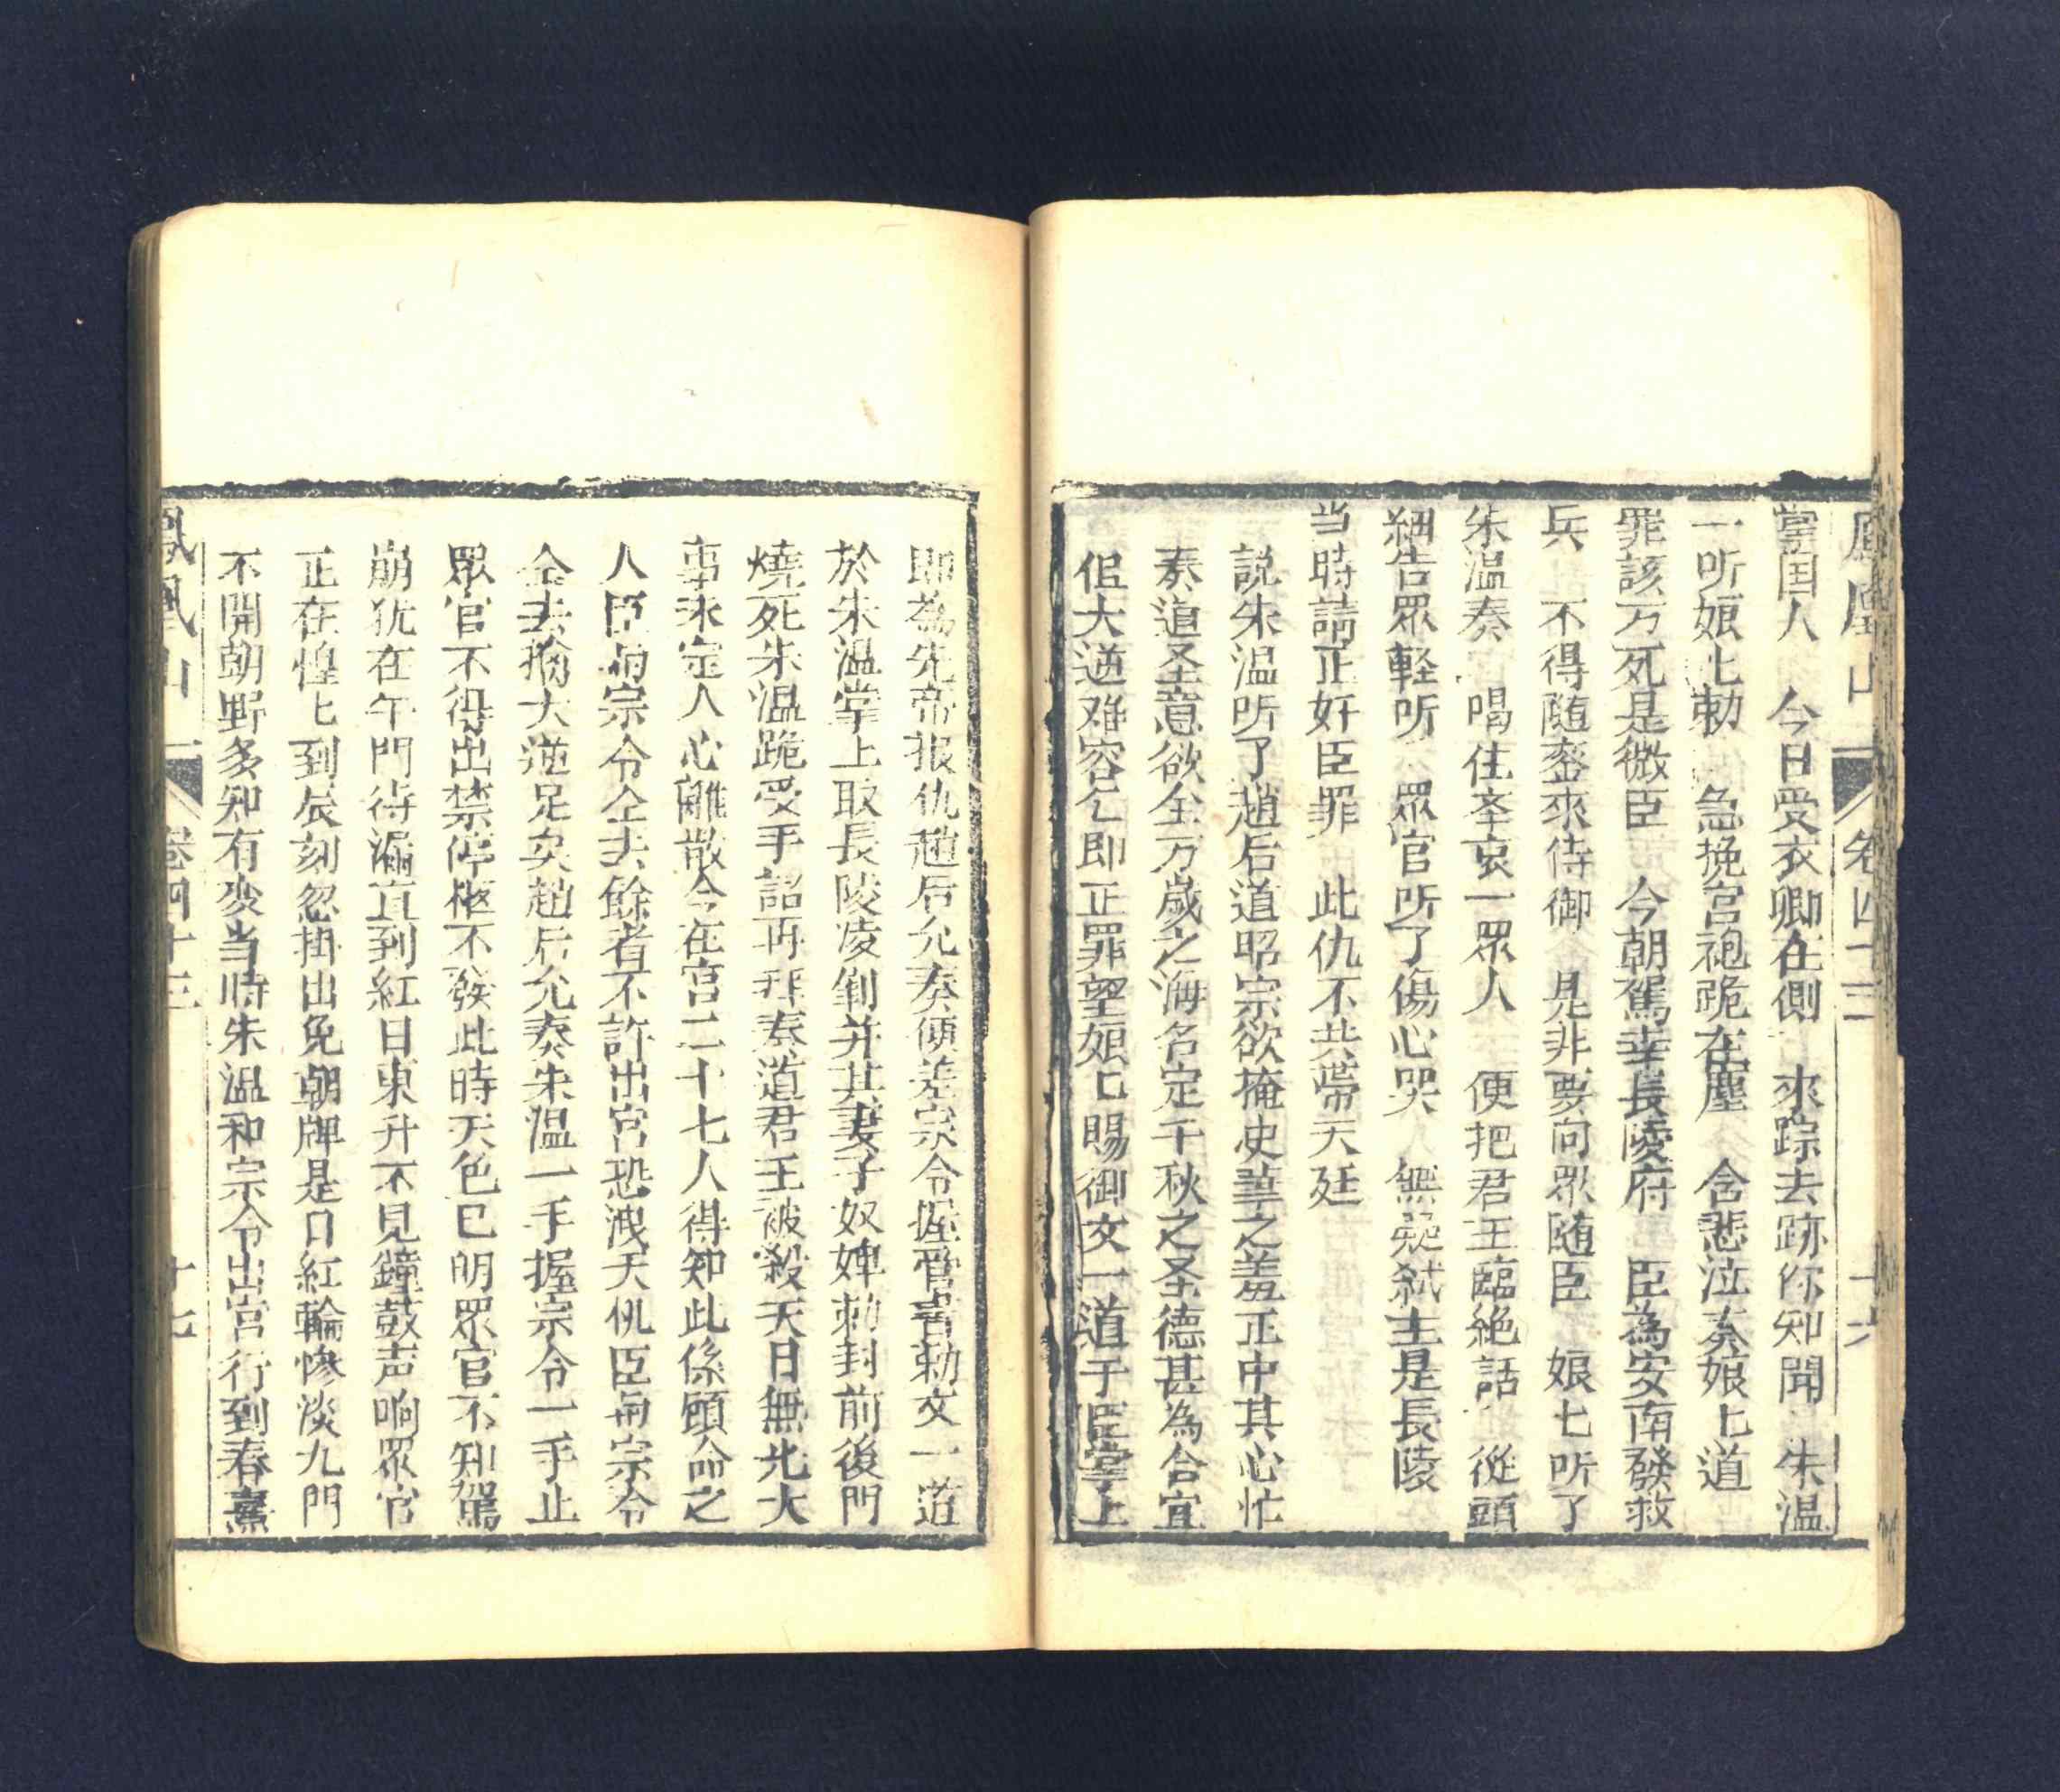 鳳凰山 卷四十三 十六
掌国人 今日受衣卿在側 來踪去跡你知聞 朱温
一听娘匕勅 急挽宮袍跪在塵 含悲泣奏娘匕道
罪該万死是微臣 今朝駕幸長陵府 臣為安南發救
兵 不得随鑾來侍御 是非要向眾随臣 娘七听了
朱温奏 喝住圣哀一眾人 便把君王臨絶話 從頭
細告眾軽听 眾官听了傷心哭 無疑弒主是長陵
当時請正奸臣罪 此仇不共帶天廷
説朱温听了趙后道昭宗欲掩史筆之羞正中其心忙
奏道圣意欲全万歲之海名定千秋之圣德甚為合宜
但大逆难容乞即正罪望娘匕賜御文一道于臣掌上
即為先帝报仇趙后允奏便差宗令握管書勅文一道
於朱温掌上取長陵凌剉并其妻子奴婢勅封前後門
燒死朱温跪受手詔再拜奏道君王被殺天日無光大
事未定人心離散今在宮二十七人得知此係顧命之
人臣同宗令仝去餘者不許出宮恐洩天机臣同宗令
仝去擒大逆足矣趙后允奏朱温一手握宗令一手止
眾官不得出禁停柩不發此時天色已明眾官不知駕
崩犹在午門待漏直到紅日東升不見鐘鼓声响眾官
正在惶匕到辰刻忽掛出免朝牌是日紅輪慘淡九門
不開朝野多知有变当時朱温和宗令出宮行到春熹
鳳凰山 卷四十三 十七